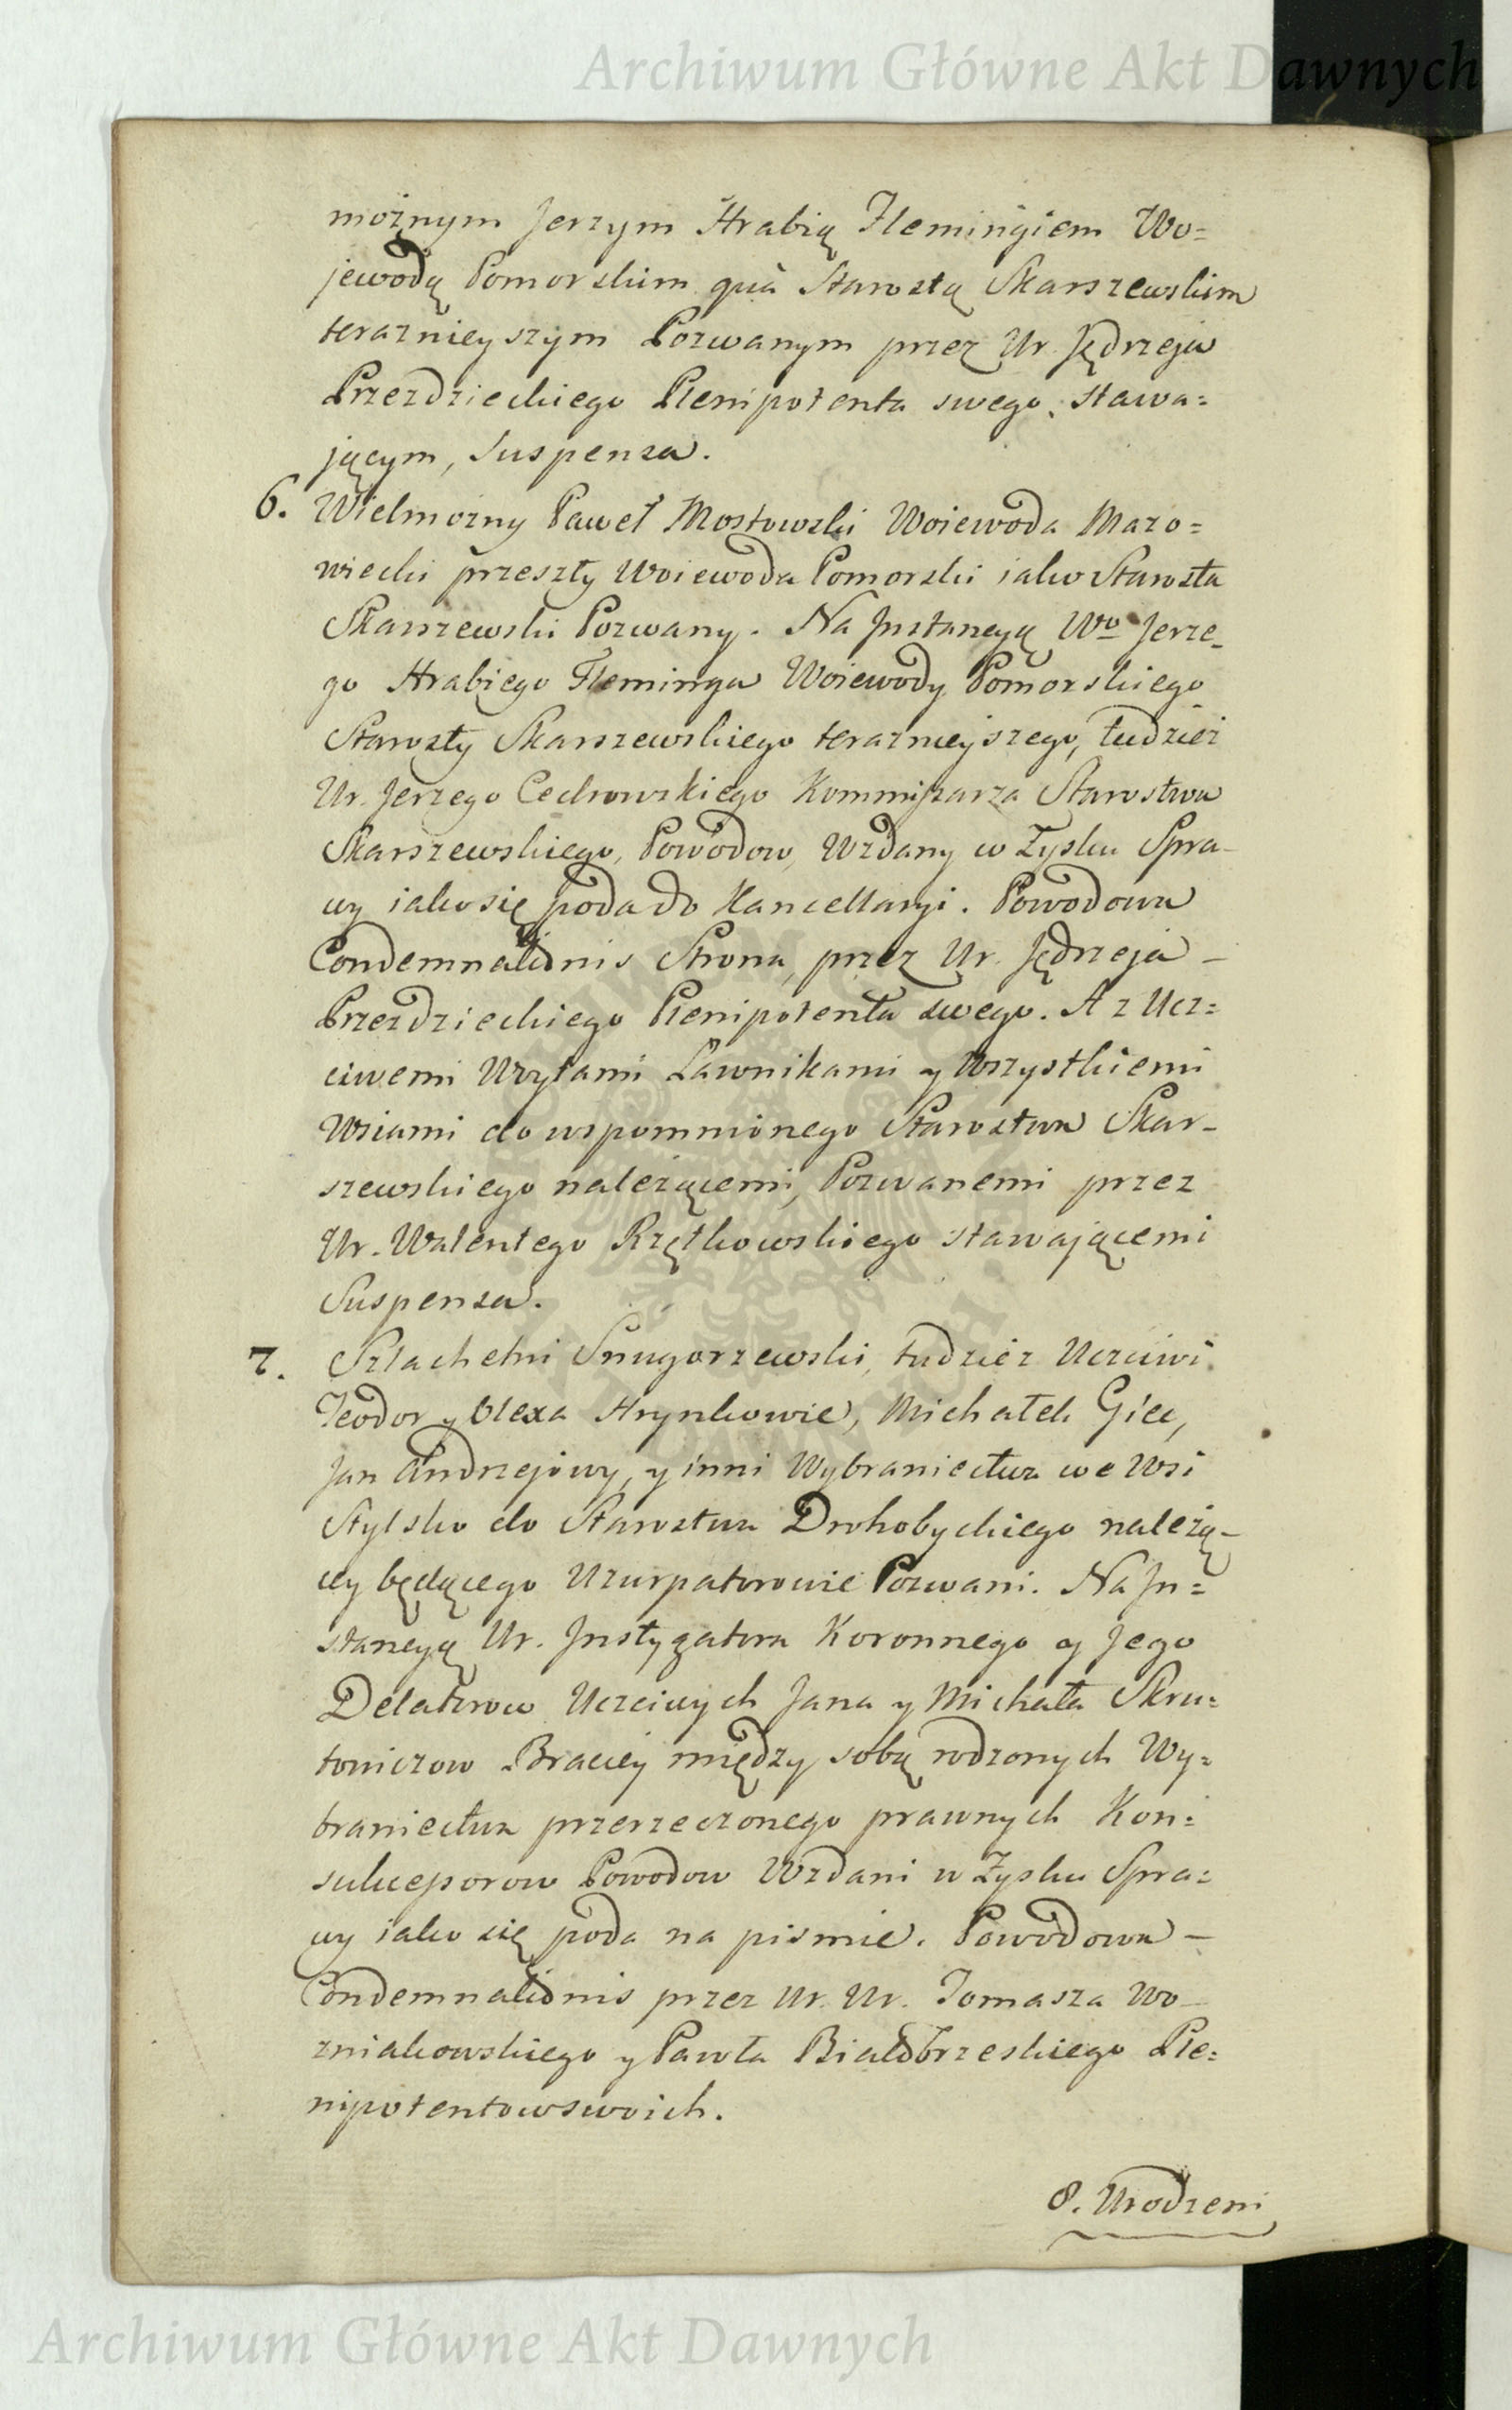 Archiwum Główne Akt Dawnych
możnym Jerzym Hrabią Flemingiem Wo=
jewodą Pomorskim quà Starostą Skarszewskim
teraznieyszym Pozwanym przez Ur. Jędrzeja
Przezdzieckiego Plenipotenta swego, stawa=
jącym, Suspensa.
6. Wielmożny Paweł Mostowski Woiewoda Mazo=
wiecki przeszły Woiewoda Pomorski iako Starosta
Skarszewski Pozwany. Na Instancyą Wo Jerze-
go Hrabiego Fleminga Woiewody Pomorskiego
Starosty Skarszewskiego teraznieyszego, tudziez
Ur. Jerzego Cechowskiego Kommissarza Starostwa
Skarszewskiego, Powodow, Wzdany w Zysku Spra-
wy iako się poda do Kancellaryi. Powodowa
Condemnationis Strona, przez Ur. Jędrzeja -
Przezdzieckiego Plenipotenta swego. A z Ucz=
ciwemi Woytami Ławnikami y Wszystkiemi
Wsiami do wspomnionego Starostwa Skar-
szewskiego należącemi, Pozwanemi przez
Ur. Walentego Rzętkowskiego stawającemi
Suspensa.
7. Szlachetni Smugorzewski, tudzież Uczciwi
Teodor y Olexa Hrynkowie, Michałek Giec,
Jan Andrzejowy, y inni Wybraniectwa we Wsi
Stylsko do Starostwa Drohobyckiego należą-
cy będącego Uzurpatorowie Pozwani. Na In=
stancyą Ur. Instygatora Koronnego y Jego
Delatorow Uczciwych Jana y Michała Skru=
toniczow Braciey między sobą rodzonych Wy=
braniectwa przerzeczonego prawnych Kon=
sukcessorow Powodow Wzdani w Zysku Spra=
wy iako się poda na pismie. Powodowa -
Condemnationis przez Ur. Ur. Tomasza Wo-
zniakowskiego y Pawła Białobrzeskiego Ple=
nipotentow swoich.
8. Urodzeni
Archiwum Główne Akt Dawnych